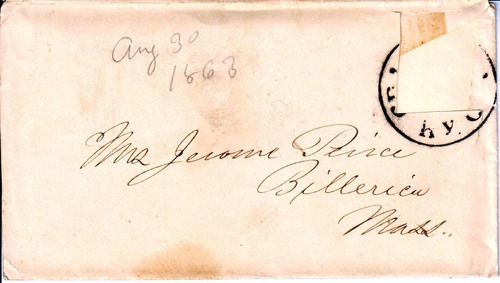 Aug 30
1863
Ky.
Mrs Jerome Peirce
Billerica
Mass.